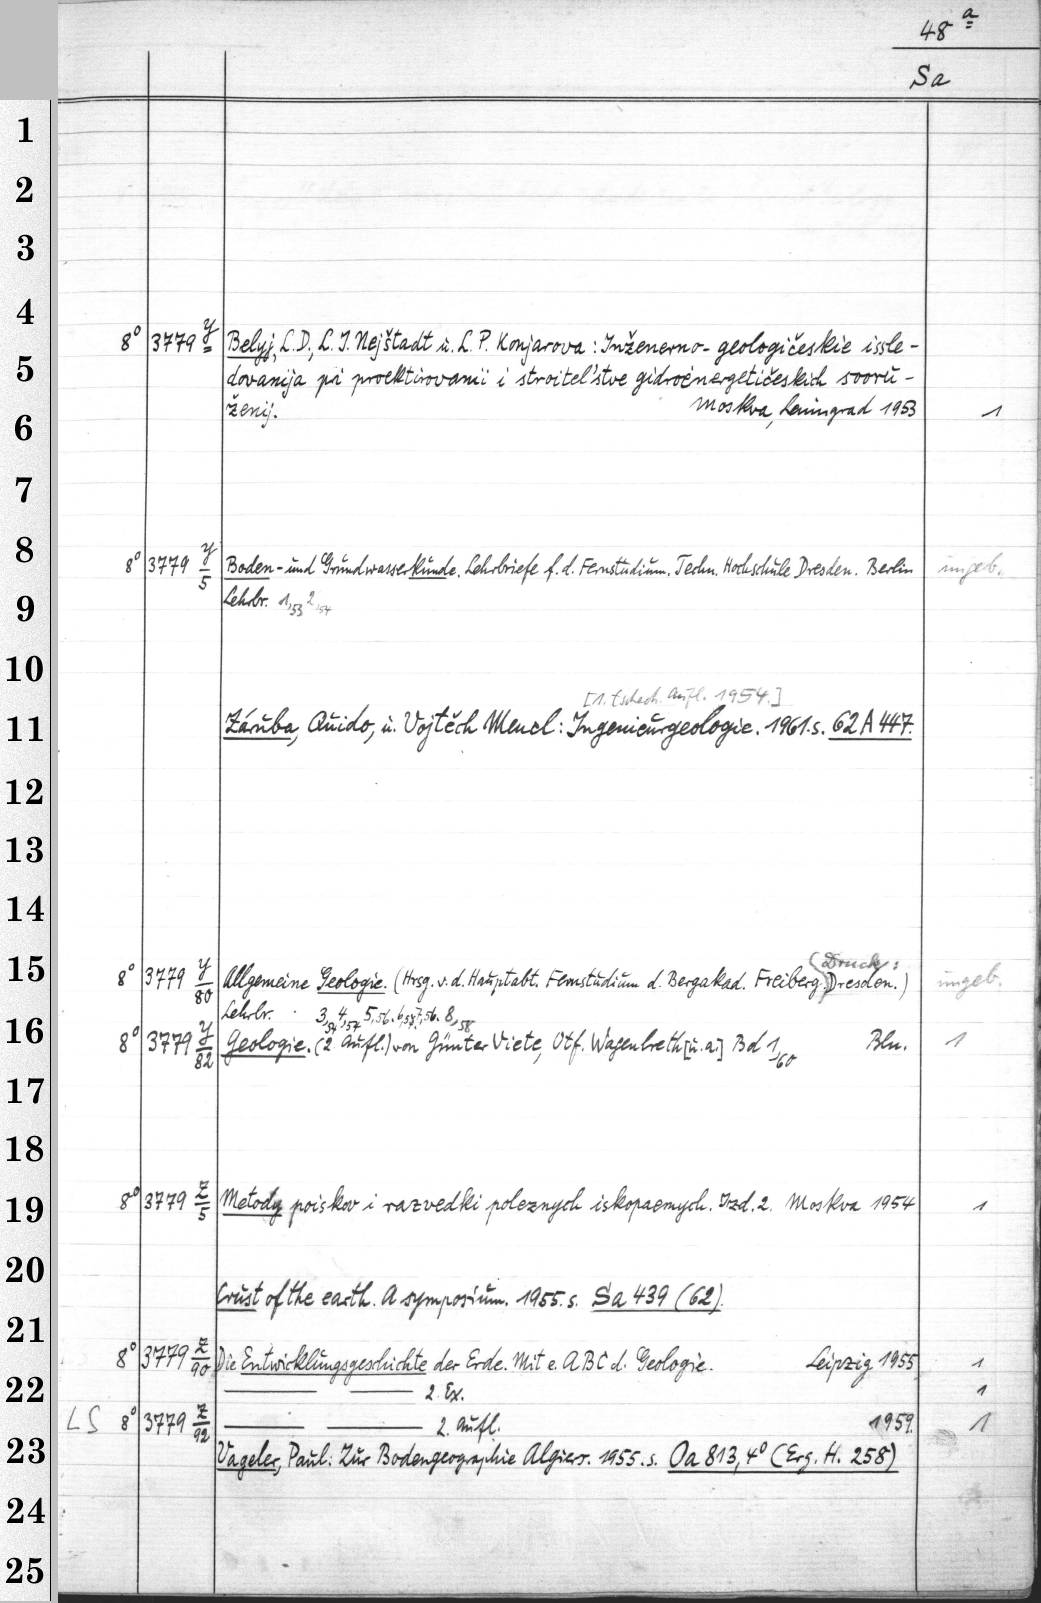 48 a
Sa
1
2
3
4
8° 3779 y Belyj, L.D., L. I. Nejštadt u. L. P. Konjarova: Inženerno-geologičeskie issle-
5
dovanija pri proektirovanii i stroitel'stve gidroėnergetičeskich sooru-
6
ženij. Moskva, Leningrad 1953 1
7
8
8° 3779 y/5 Boden- und Grundwasserkunde. Lehrbriefe f. d. Fernstudium. Techn. Hochschule Dresden. Berlin ungeb.
9
Lehrbr. 1,53 2,54
10
[1. tschech. Aufl. 1954.]
11
Záruba, Quido, u. Vojtěch Mencl: Ingenieurgeologie. 1961. s. 62 A 447.
12
13
14
15
(Druck:
8° 3779 y/80 Allgemeine Geologie. (Hrsg. v. d. Hauptabt. Fernstudium d. Bergakad. Freiberg. Dresden.) ungeb.
Lehrbr. 3,54 4,57 5,56. 6,58 7,56. 8,58
16
8° 3779 y/82 Geologie. (2. Aufl.) von Günter Viete, Otf. Wagenbreth [u.a.] Bd 1,60 Bln. 1
17
18
19
8° 3779 z/5 Metody poiskov i razvedki poleznych iskopaemych. Izd. 2. Moskva 1954 1
20
Crust of the earth. A symposium. 1955. s. Sa 439 (62).
21
8° 3779 z/90 Die Entwicklungsgeschichte der Erde. Mit e. ABC d. Geologie. Leipzig 1955 1
22
—— —— 2. Ex. 1
LS 8° 3779 z/92 —— —— 2. Aufl. 1959. 1
23
Vageler, Paul: Zur Bodengeographie Algiers. 1955. s. Oa 813, 4° (Erg. H. 258)
24
25